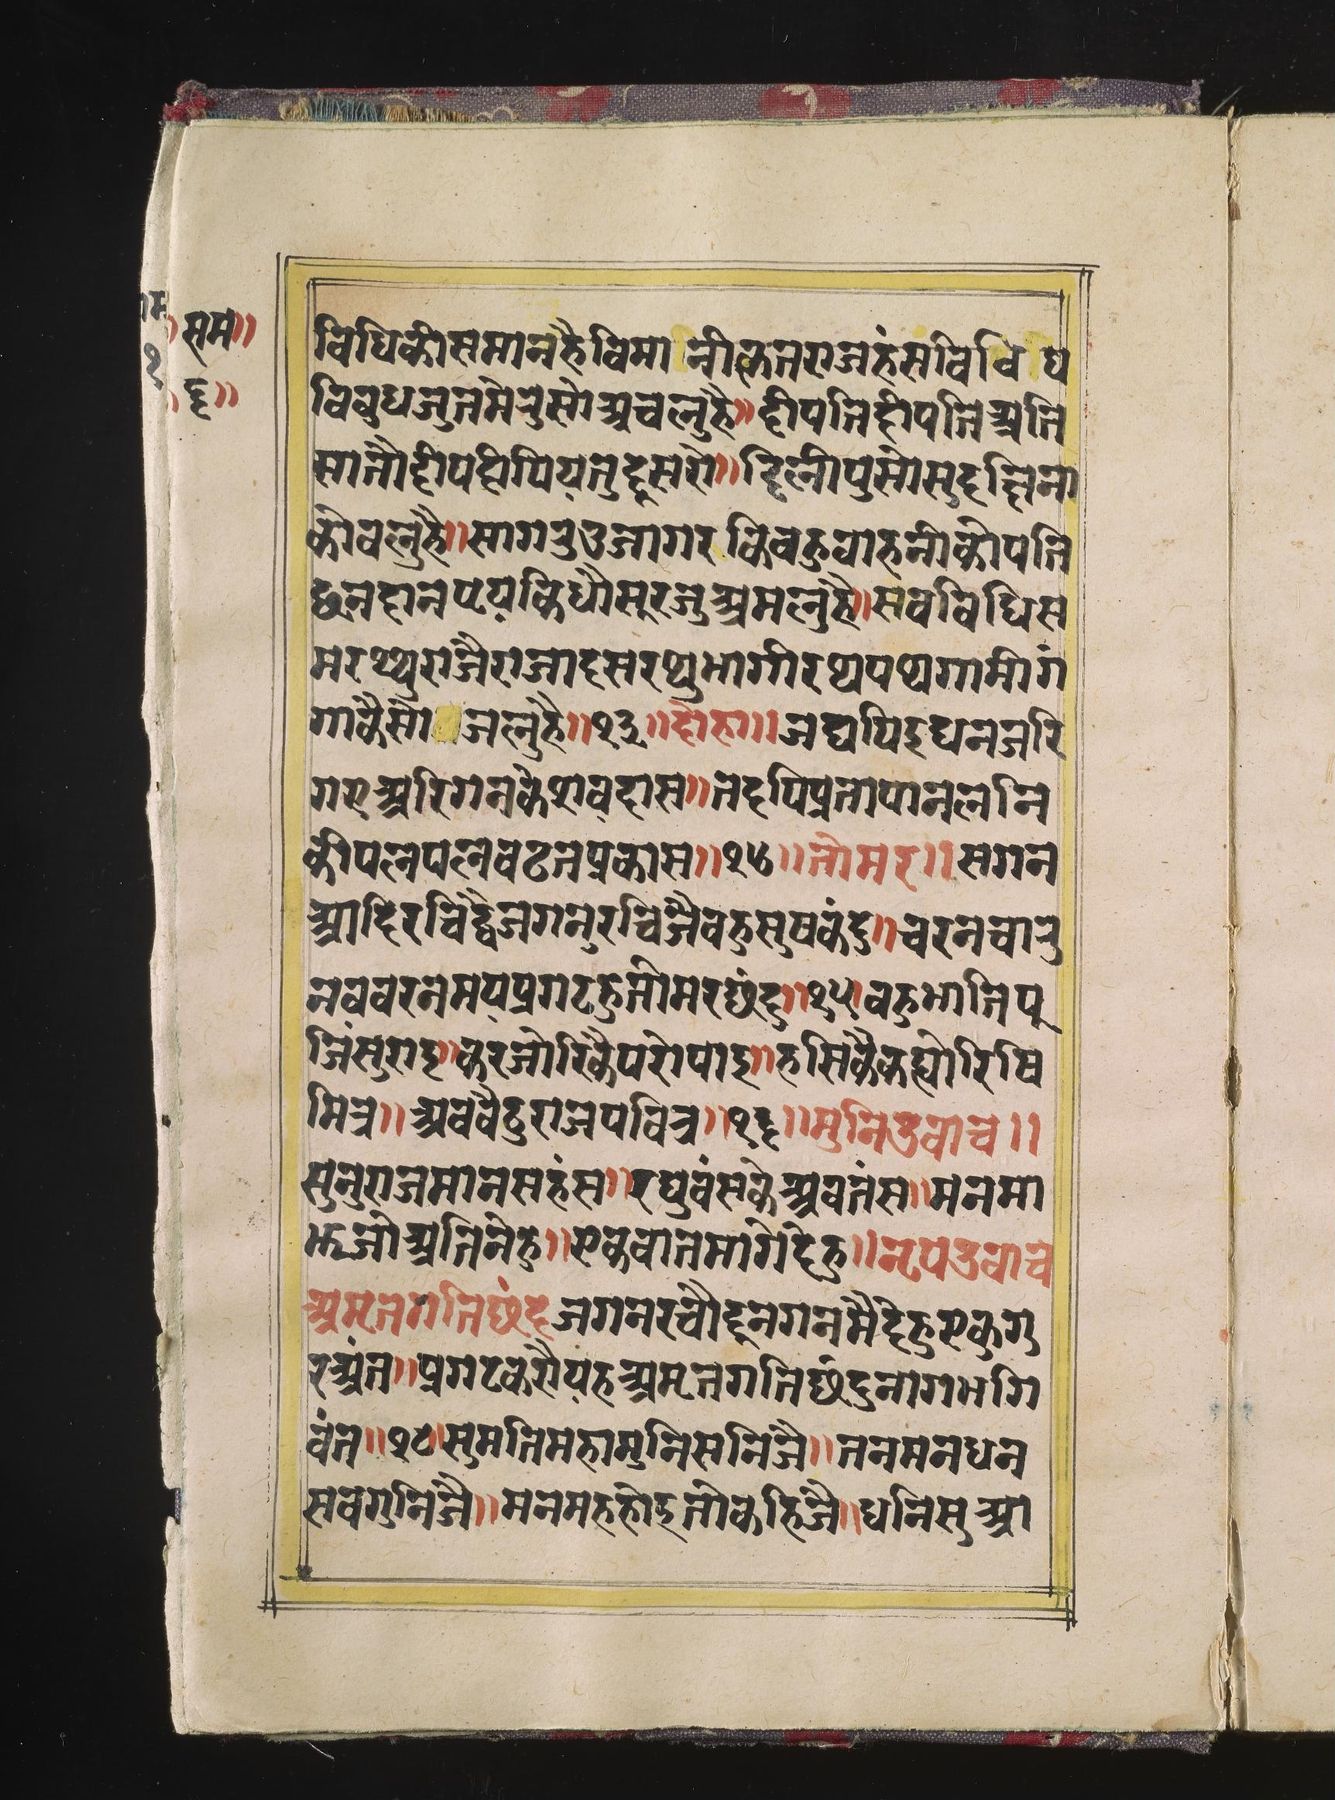 सम॥
६॥
विधिकीसमानहैविमानीकृतराजहंसविविध
विबुधजुतमेरुसोअचलुहै॥दीपतिदीपतिअति
सातौदीपदीपियतुदूसरो॥दिलीपुसोसुदछिना
कोवलुहै॥सागरुउजागरकिबहुवाहनीकोपति
छनदानप्रयकिधौसूरजुअमलुहै॥सबबिधिस
मरथ्थुराजैराजादसरथुभागीरथपथगामीगं
गाकैसोजलुहै॥१३॥दोहा॥जद्यपिइधनजरि
गएअरिगनकेशवदास॥तदपिप्रतापानलनि
कीपलपलबढतप्रकास॥१४॥तोमर॥सगन
आदिरचिद्वैजगनुरचिजैबहुसुषकंदु॥चरनचारु
नवबरनमयप्रगटहुतोमरछंदु॥१५॥बहुभातिपू
जिसुराइ॥करजोरिकैपरोपाइ॥हसिकैकह्योरिषि
मित्र॥अबबैठुराजपवित्र॥१६॥मुनिउवाच॥
सुनुराजमानसहंस॥रघुवंसकेअवतंस॥मनमा
झजोअतिनेहु॥एकबातमागेदेहु॥नृपउवाच
अमृतगतिछंदजगनरचौदूनगनमैदेहुएकुगु
रुअंत॥प्रगटकरौयहअमृतगतिछंदुनागभगि
वंत॥१७॥सुमतिमहामुनिसनिजै॥तनमनधन
सबगुनिजै॥मनमहहोइतोकहिजै॥धनिसुआ